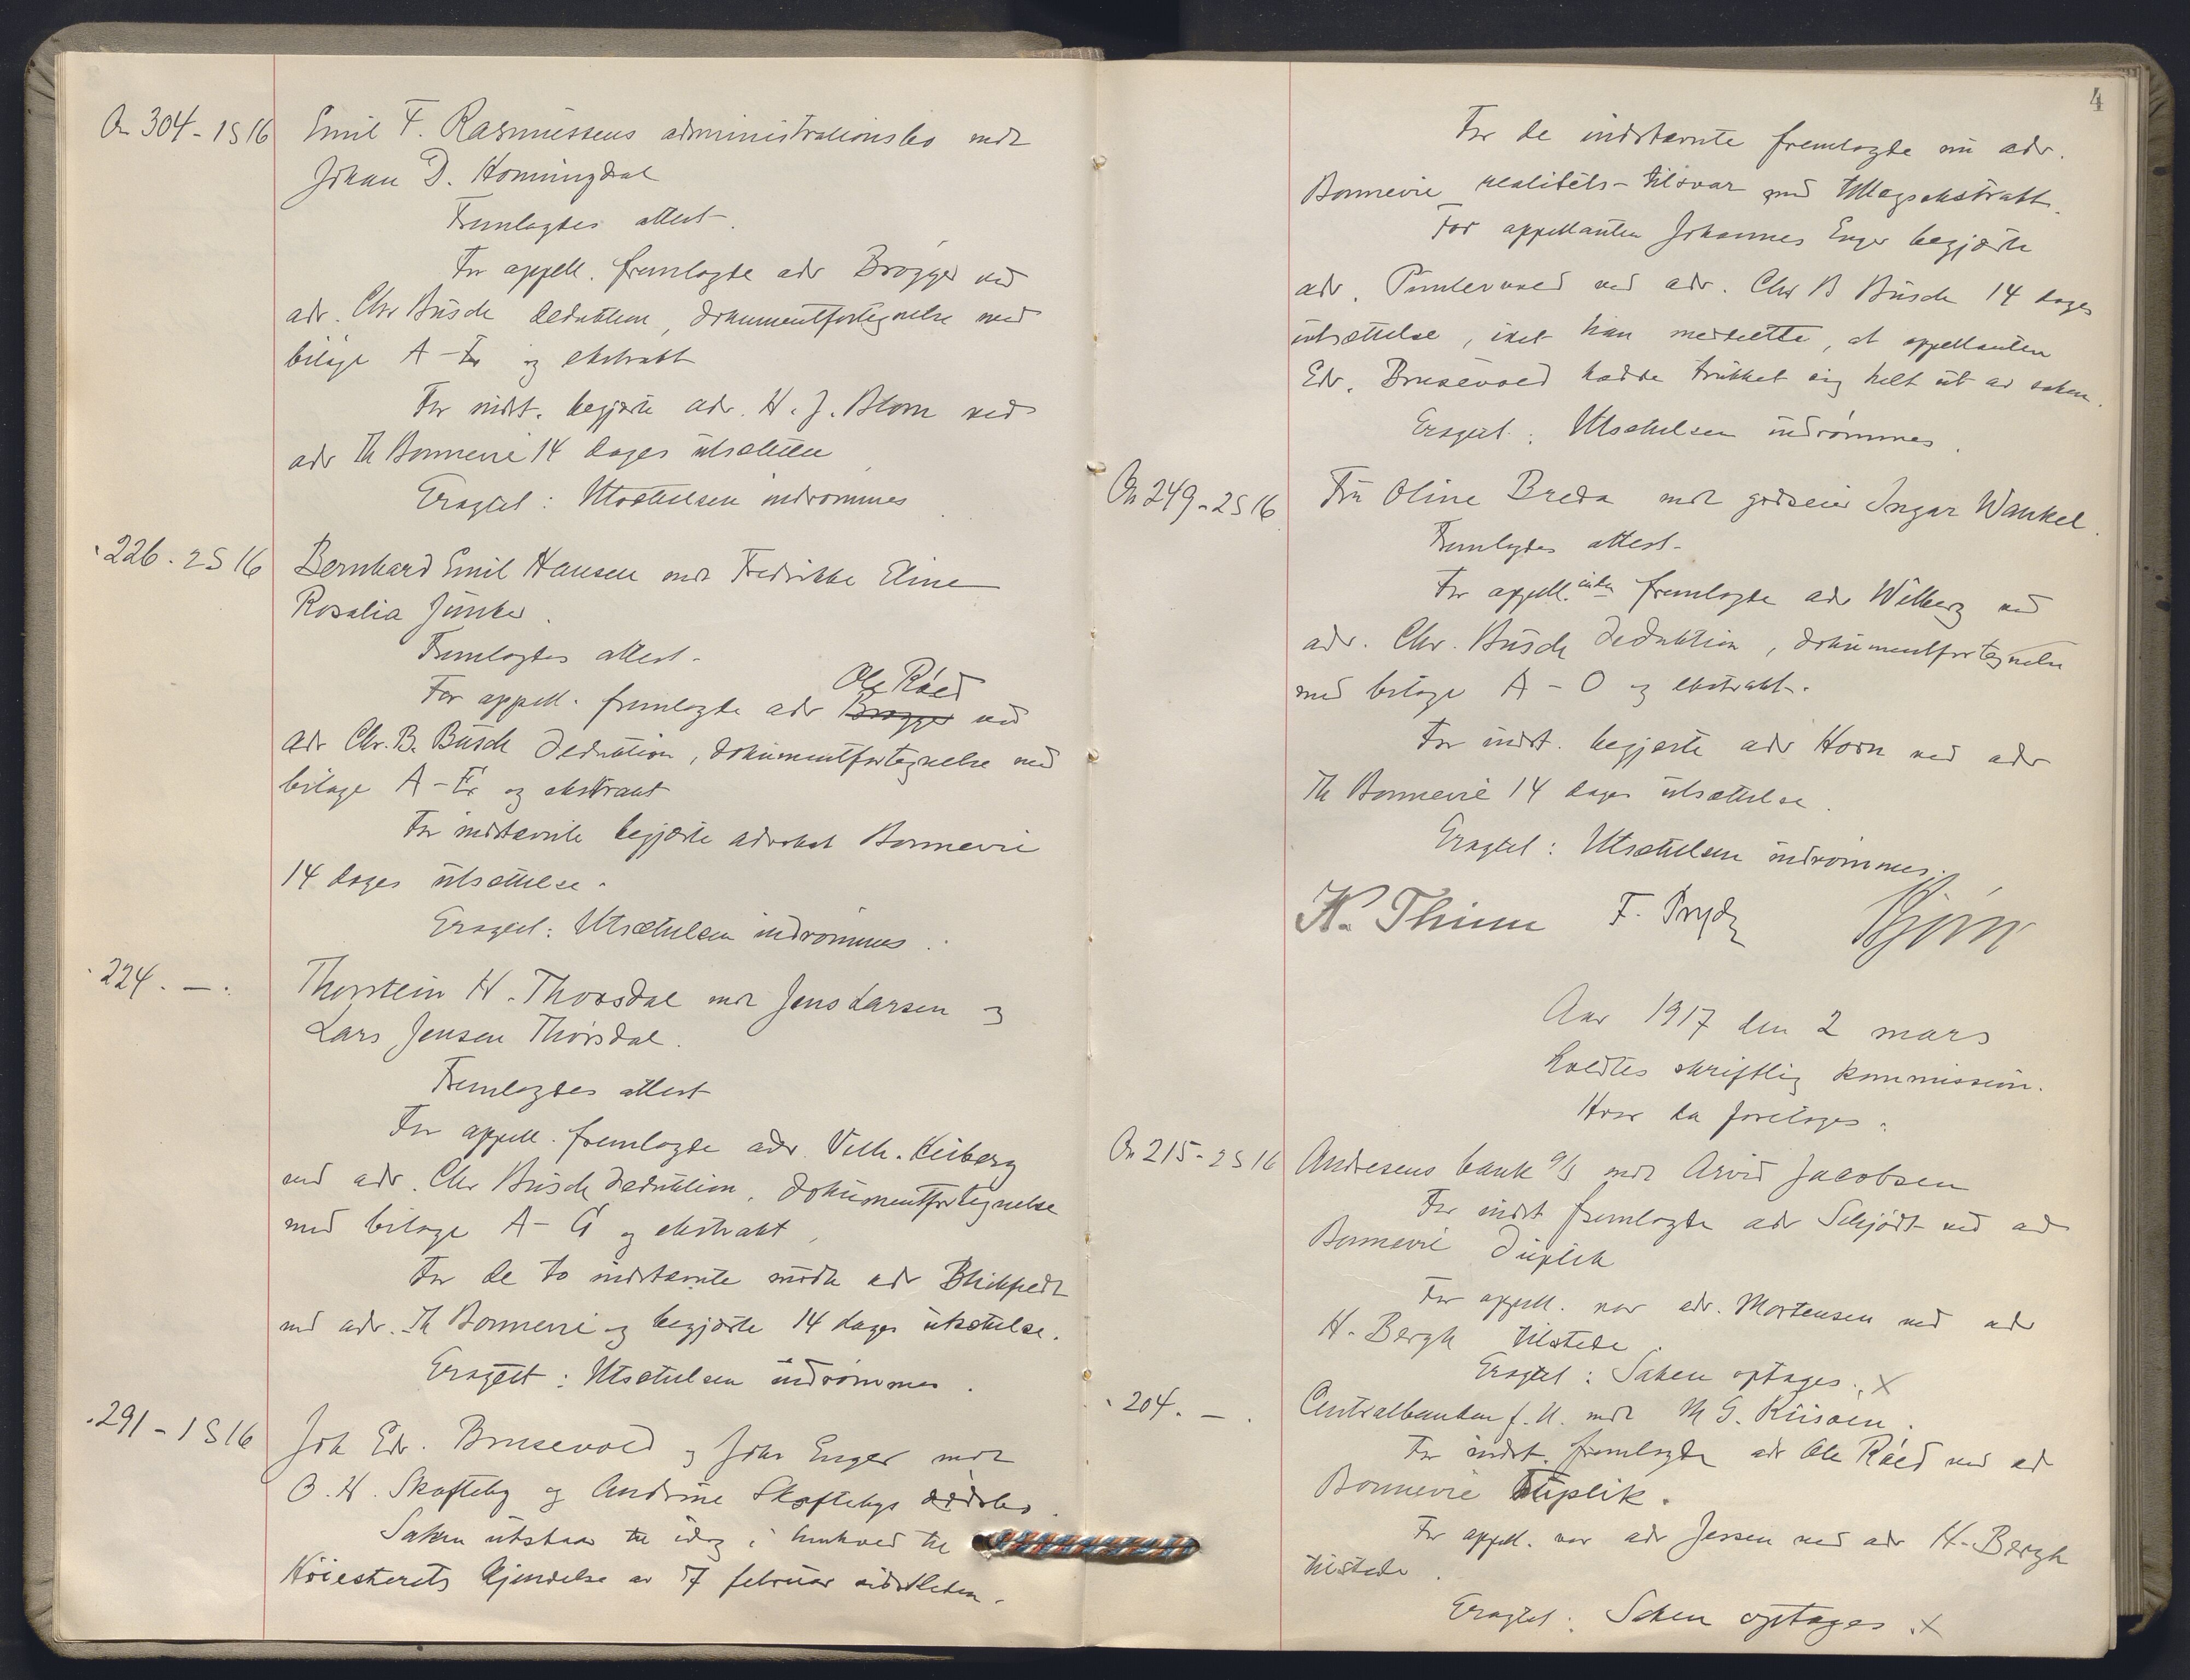 On 304 - 1 S 16
Emil F. Rasmussens administrationsbo mot
Johan D. Honningdal
Fremlagdes attest.
For appell. fremlagde adv Brøgger ved
adv. Chr Busch deduktion, dokumentfortegnelse med
bilage A - E og ekstrakt
For indst. begjærte adv. H. J. Blom ved
adv Th Bonnevie 14 dages utsættelse
Eragtet: Utsættelsen indrømmes
" 226 - 2 S 16
Bernhard Emil Hansen mot Fredrikke Eline
Rosalia Junker.
Fremlagdes attest.
Ole Røed
For appell. fremlagde adv Brøgger ved
adv Chr. B. Busch deduktion, dokumentfortegnelse med
bilage A - E og ekstrakt
For indstævnte begjærte advokat Bonnevie
14 dages utsættelse.
Eragtet: Utsættelsen indrømmes.
" 224. - "
Thorstein H. Thorsdal mot Jens Larsen og
Lars Jensen Thorsdal.
Fremlagdes attest
For appell. fremlagde adv. Vilh. Heiberg
ved adv. Chr Busch deduktion, dokumentfortegnelse
med bilage A - G og ekstrakt
For de to indstævnte mødte adv Blickfeldt
ved adv. Th Bonnevie og begjærte 14 dages utsættelse.
Eragtet: Utsættelsen indrømmes.
" 291 - 1 S 16
Joh Edv. Brusevold og Johs Enger mot
O. H. Skofteby og Andrine Skoftebys dødsbo.
Saken utstaar til idag i henhold til
Høiesterets kjendelse av 17 februar sidstleden.
4
For de indstævnte fremlagde nu adv.
Bonnevie realitets-tilsvar med tillægsekstrakt.
For appellanten Johannes Enger begjærte
adv. Puntervold ved adv. Chr B Busch 14 dages
utsættelse, idet han meddelte, at appellanten
Edv. Brusevold hadde trukket sig helt ut av saken.
Eragtet: Utsættelsen indrømmes.
On 249 - 2 S 16
Fru Oline Breda mot godseier Ingar Wankel.
Fremlagdes attest.
For appell.inden fremlagde adv Wilberg ved
adv. Chr. Busch deduktion, dokumentfortegnelse
med bilage A - O og ekstrakt.
For indst. begjærte adv Horn ved adv
Th Bonnevie 14 dages utsættelse.
Eragtet: Utsættelsen indrømmes.
K. Thinn F. Prydz Bjørn
Aar 1917 den 2 mars
holdtes skriftlig kommission.
Hvor da foretages:
On 215 - 2 S 16
Andresens bank a/s mot Arvid Jacobsen
For indst fremlagde adv Schjødt ved adv
Bonnevie duplik
For appell. var adv. Mortensen ved adv
H. Bergh tilstede.
Eragtet: Saken optages. X
" 204. - "
Centralbanken f. N. mot M G. Kiisøen.
For indst. fremlagde adv Ole Røed ved adv
Bonnevie Duplik.
For appell. var adv Jensen ved adv H. Bergh
tilstede.
Eragtet: Saken optages. X